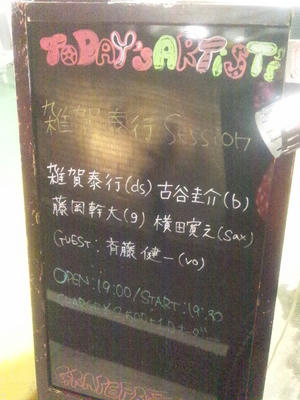 TODAY'S ARTISTS
雑賀泰行 Session
雑賀泰行(ds) 古谷圭介(b)
藤岡幹大(g) 横田寛之(Sax)
GUEST: 斉藤健一(vo)
OPEN:19:00/START:19:30
CHARGE ¥2,500+1D